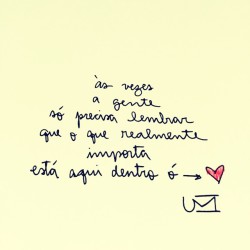 às vezes
a gente
só precisa lembrar
que o que realmente
importa
está aqui dentro ó